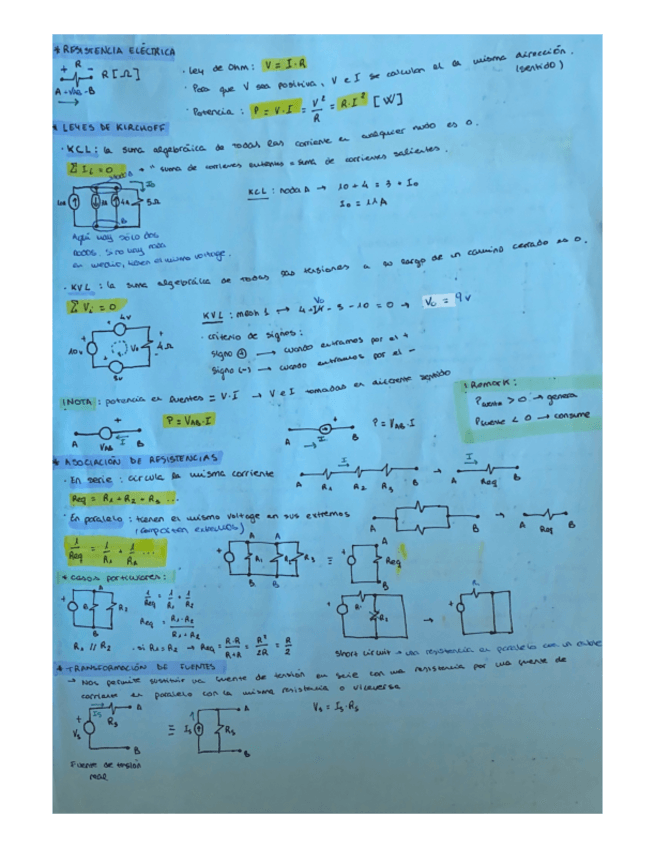 * RESISTENCIA ELÉCTRICA
+ R -
R [Ω]
A - VAB - B
· Ley de Ohm: V = I·R
· Para que V sea positiva, V e I se calculan en la misma dirección. (sentido)
· Potencia: P = V·I = V²/R = R·I² [W]
* LEYES DE KIRCHOFF
· KCL: la suma algebráica de todas las corriente en cualquier nodo es 0.
Σ IL = 0 → "suma de corrientes entrantes = suma de corrientes salientes.
KCL: nodo A → 10 + 4 = 3 + I0
I0 = 11A
5Ω
Aquí hay sólo dos
nodos. Si no hay nada
en medio, tienen el mismo voltage.
· KVL: la suma algebráica de todas las tensiones a lo largo de un camino cerrado es 0.
Σ Vi = 0
KVL: mesh 1 → 4 - V0 - 3 - 10 = 0 → V0 = 9v
4v
10v
V0
4Ω
3v
· criterio de signos:
signo (+) → cuando entramos por el +
signo (-) → cuando entramos por el -
!NOTA: potencia en fuentes = V·I → V e I tomadas en diferente sentido
P = VAB·I
A VAB I B
A I B
P = VAB·I
!Remark:
Pfuente > 0 → genera
Pfuente < 0 → consume
* ASOCIACIÓN DE RESISTENCIAS
· En serie: circula la misma corriente
Req = R1 + R2 + R3 ...
A R1 R2 R3 B → A Req B
· En paralelo: tienen el mismo voltage en sus extremos
(comparten extremos)
1/Req = 1/R1 + 1/R2 ...
A B → A Req B
* casos particulares:
1/Req = 1/R1 + 1/R2
Req = R1·R2/R1+R2
R1 // R2 · si R1 = R2 → Req = R·R/R+R = R²/2R = R/2
short circuit → una resistencia en paralelo con un cable
* TRANSFORMACIÓN DE FUENTES
→ Nos permite sustituir una fuente de tensión en serie con una resistencia por una fuente de
corriente en paralelo con la misma resistencia o viceversa
Vs = Is·Rs
Fuente de tensión
real